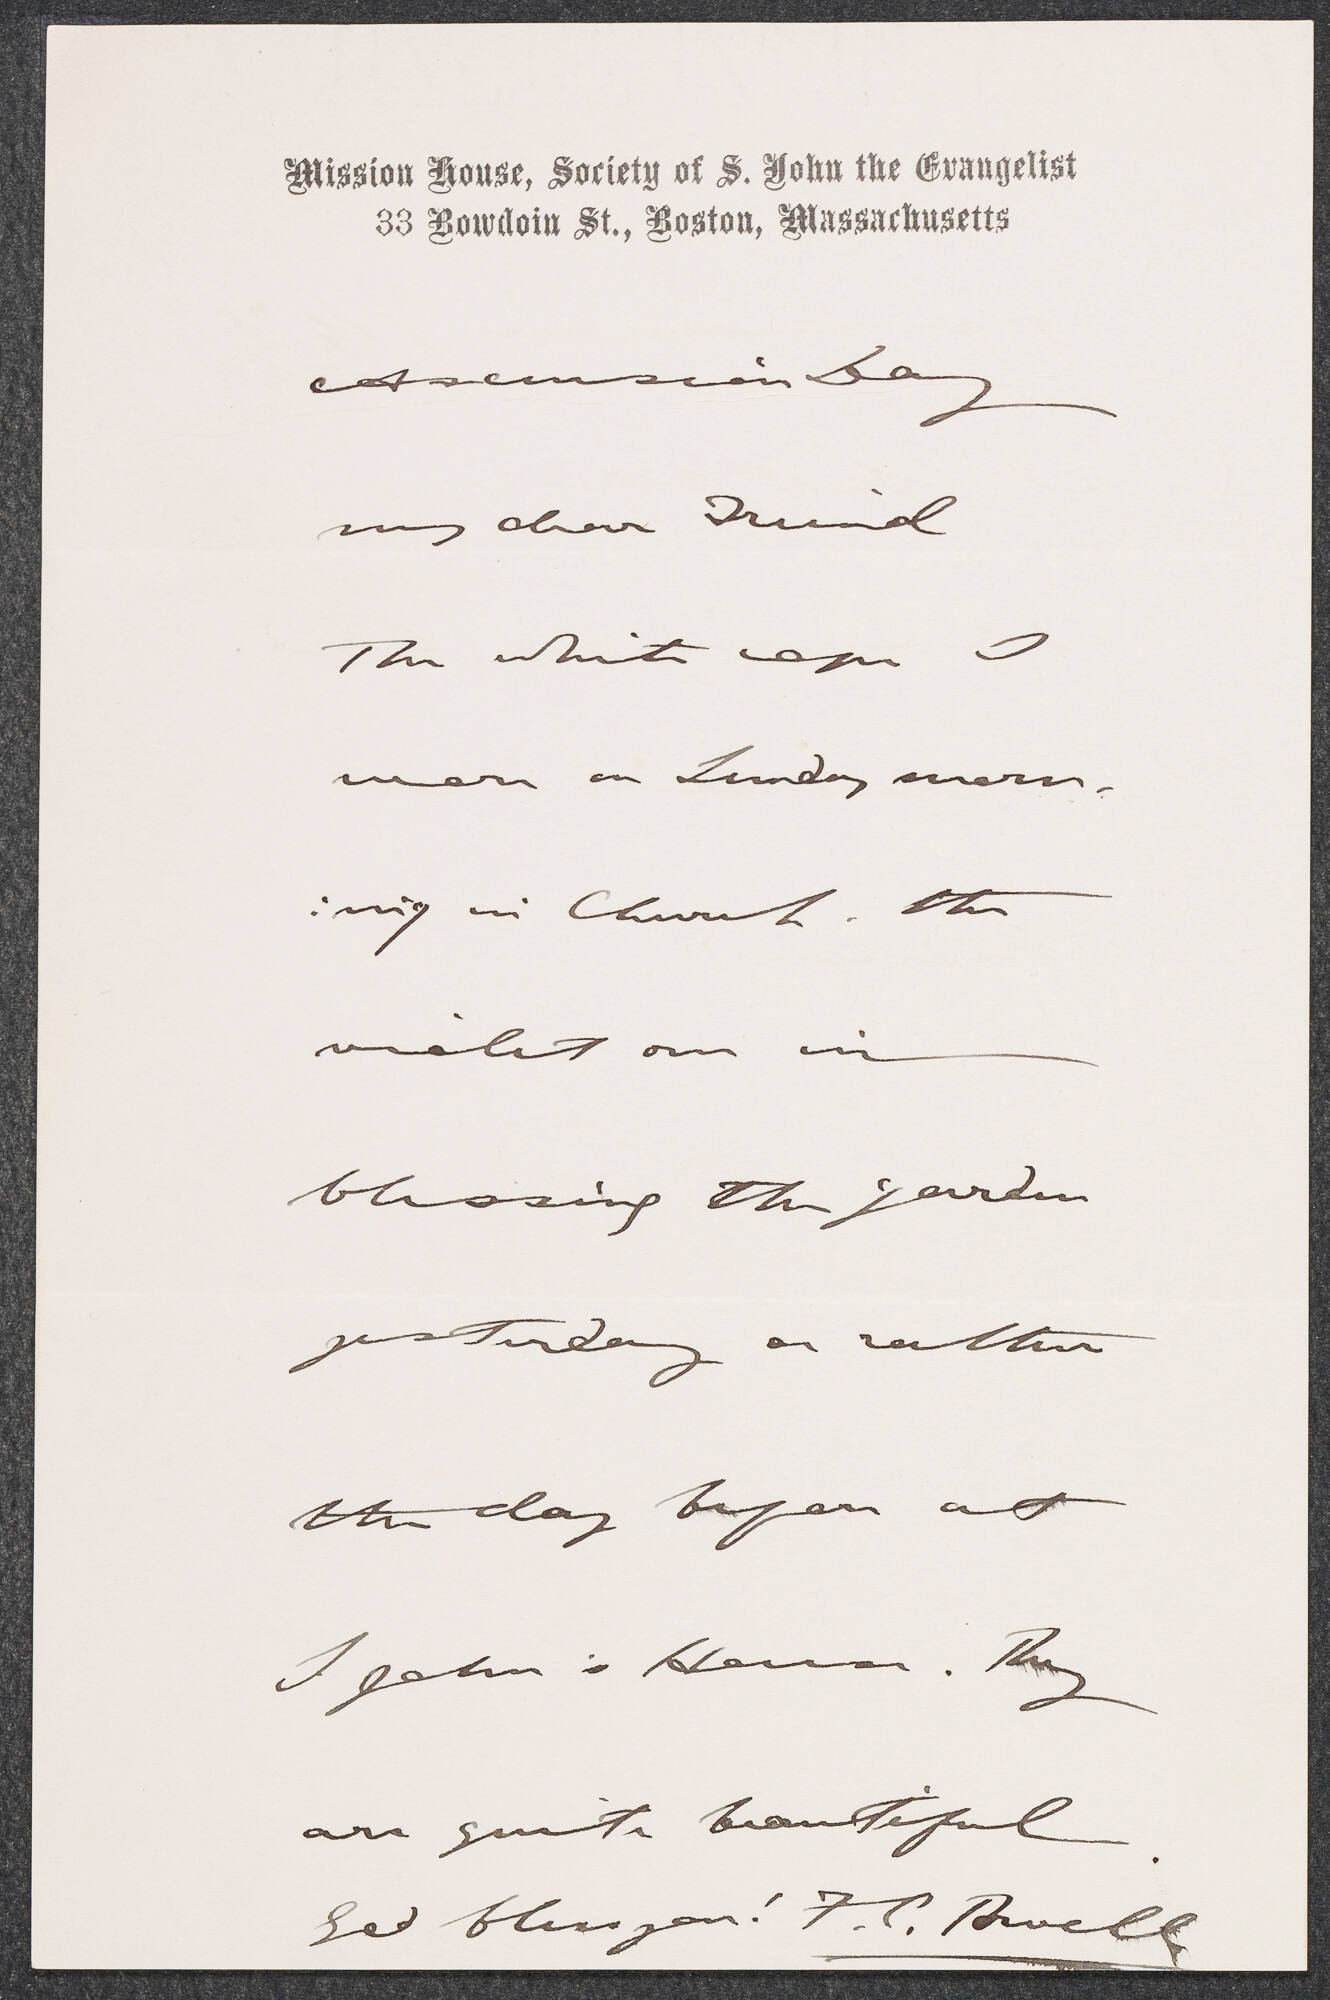 Mission House, Society of S. John the Evangelist
33 Bowdoin St., Boston, Massachusetts
Ascension Day
My dear Friend
The white cope I
wore on Sunday morn-
:ing in Church. the
violet one in
blessing the garden
yesterday or rather
the day before at
S John's House. They
are quite beautiful.
God bless you! F.C. Powell